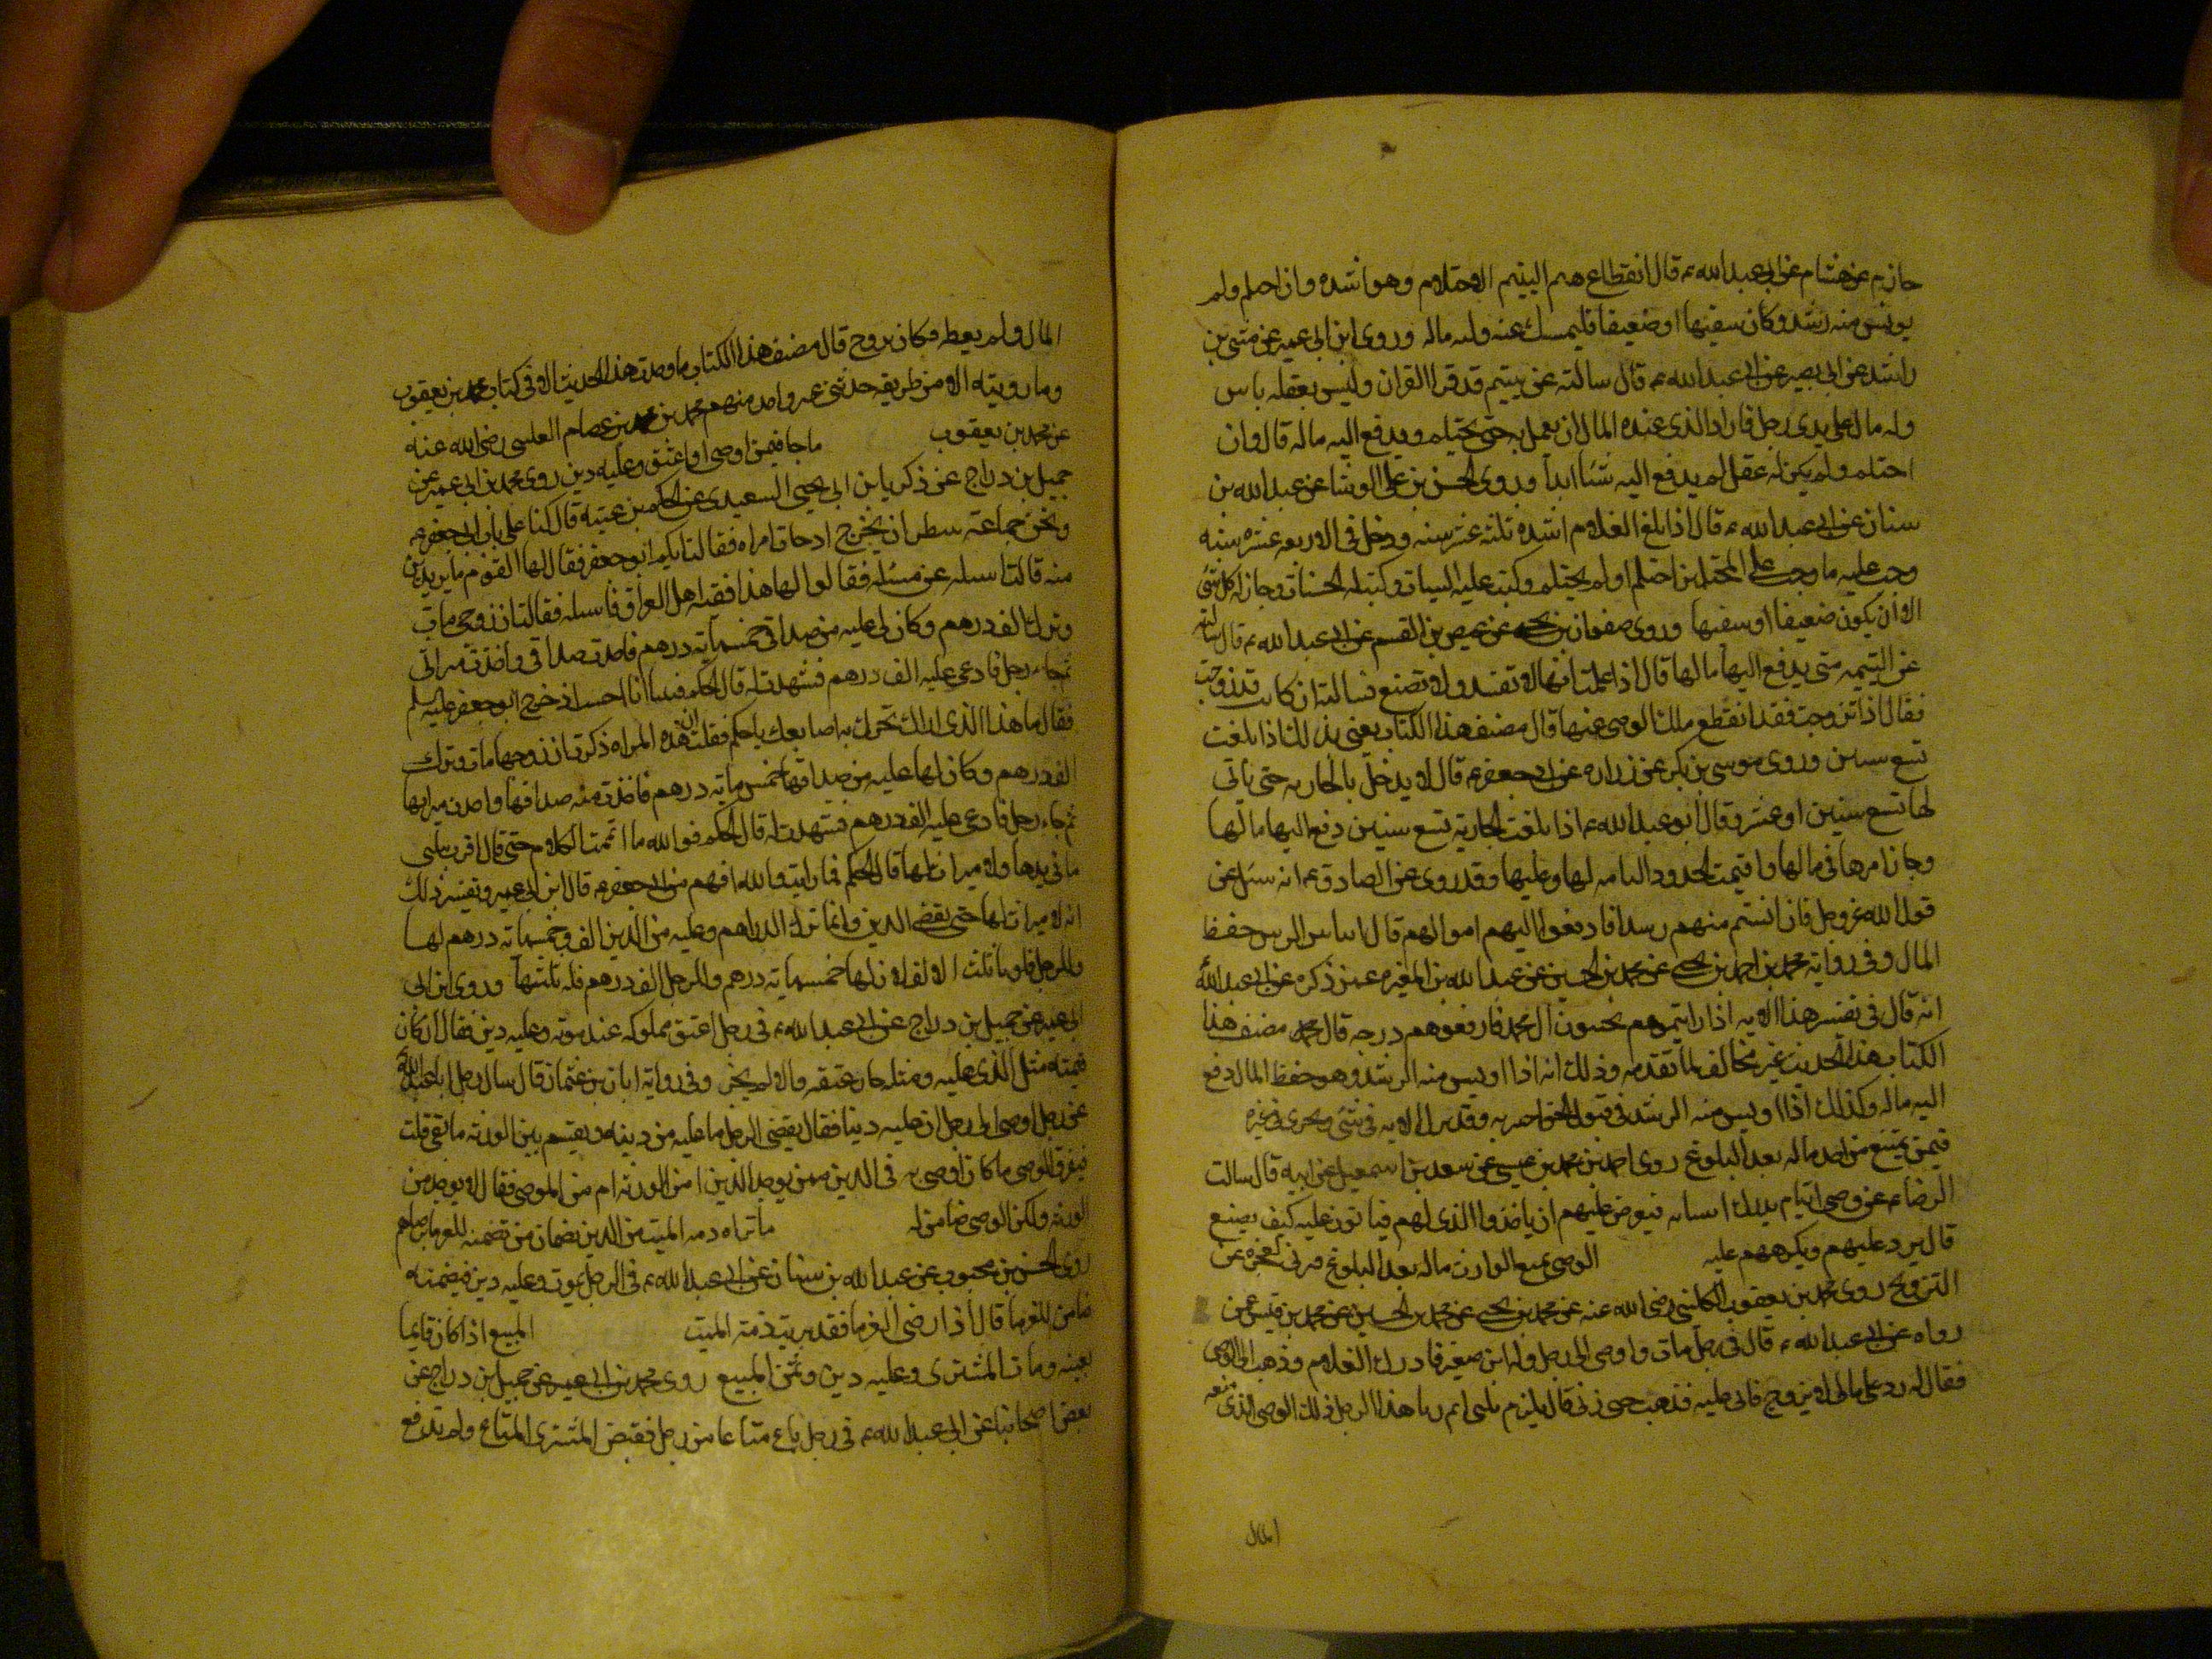 حازم عن هشام عن ابى عبد الله ع قال انقطاع هم اليتيم الاحتلام وهو اشده وان احتلم ولم
يونس منه رشد وكان سفيها او ضعيفا فليمسك عنه وليه ماله وروى ابن ابى عمير عن مثنى بن
راشد عن ابى بصير عن ابى عبد الله ع قال سالته عن يتيم قد قرا القران وليس بعقله باس
وله مال على يدى رجل فاراد الذى عنده المال ان يعمل به حتى يحتلم ويدفع اليه ماله قال وان
احتلم ولم يكن له عقل لم يدفع اليه شئا ابدا وروى الحسن بن على الوشا عن عبد الله بن
سنان عن ابى عبد الله ع قال اذا بلغ الغلام اشده ثلثه عشر سنه ودخل فى الاربعه عشره سنه
وجب عليه ما وجب على المحتلمين احتلم او لم يحتلم وكتبت عليه السيات وكتبت له الحسنات وجاز له كل شئ
الا ان يكون ضعيفا او سفيها وروى صفوان بن يحيى عن عيص بن القسم عن ابى عبد الله ع قال سالته
عن اليتيمه متى يدفع اليها مالها قال اذا علمت انها لا تفسد ولا تضيع فسالته ان كانت قد زوجت
فقال اذا تزوجت فقد انقطع ملك الوصى عنها قال مصنف هذا الكتاب يعنى بذلك اذا بلغت
تسع سنين وروى موسى بن بكر عن زراره عن ابى جعفر ع قال لا يدخل بالجاريه حتى ياتى
لها تسع سنين او عشر وقال ابو عبد الله ع اذا بلغت الجارية تسع سنين دفع اليها مالها
وجاز امرها فى مالها واقيمت الحدود التامه لها وعليها وقد روى عن الصادق ع انه سئل عن
قول الله عز وجل فان انستم منهم رشدا فادفعوا اليهم اموالهم قال ايناس الرشد حفظ
المال وفى رواية محمد بن احمد بن يحيى عن محمد بن الحسين عن عبد الله بن المغيره عمن ذكره عن ابى عبد الله
انه قال فى تفسير هذا الايه اذا رايتموهم يحبون ال محمد فارفعوهم درجه قال محمد مصنف هذا
الكتاب هذا الحديث غير مخالف لما تقدمه وذلك انه اذا اونس منه الرشد وهو حفظ المال دفع
اليه ماله وكذلك اذا اونس منه الرشد فى قبول الحق اختبر به وقد تنزل الايه فى شئ وتجرى فى غيره
فيمن يمتنع من اخذ ماله بعد البلوغ روى احمد بن محمد بن عيسى عن سعد بن اسمعيل عن ابيه قال سالت
الرضا ع عن وصى ايتام يدرك ايتامه فيعرض عليهم ان ياخذوا الذى لهم فيابون عليه كيف يصنع
قال يرد عليهم ويكرههم عليه الوصى يمنع الوارث ماله بعد البلوغ فيزنى لعجزه عن
التزويج روى محمد بن يعقوب الكلينى رضى الله عنه عن محمد بن يحيى عن محمد بن الحسين عن محمد بن قيس عمن
رواه عن ابى عبد الله ع قال فى رجل مات واوصى الى رجل وله ابن صغير فادرك الغلام وذهب الى الوصى
فقال له رد على مالى لاتزوج فابى عليه فذهب حتى زنى قال يلزم ثلثى اثم زنا هذا الرجل ذلك الوصى الذى منعه
المال
المال ولم يعطه فكان يزوج قال مصنف هذا الكتاب ما وجدت هذا الحديث الا فى كتاب محمد بن يعقوب
وما رويته الا من طريقه حدثنى غير واحد منهم محمد بن محمد بن عصام الكلينى رضى الله عنه
عن محمد بن يعقوب ما جا فيمن اوصى او اعتق وعليه دين روى محمد بن ابى عمير عن
جميل بن دراج عن زكريا بن ابى يحيى السعيدى عن الحكم بن عتيبه قال كنا على باب ابى جعفر ع
ونحن جماعة ننتظر ان يخرج اذ جات امراه فقالت ايكم ابو جعفر فقال لها القوم ما تريدين
منه قالت اسله عن مسئلة فقالوا لها هذا فقيه اهل العراق فاسليه فقالت ان زوجى مات
وترك الف درهم وكان لى عليه من صداقى خمسمايه درهم فاخذت صداقى واخذت ميراثى
ثم جاء رجل فادعى عليه الف درهم فشهدت له قال الحكم فبينا انا احسب اذ خرج ابو جعفر عليه السلم
فقال ما هذا الذى اراك تحرك به اصابعك يا حكم فقلت ان هذه المراه ذكرت ان زوجها مات وترك
الف درهم وكان لها عليه من صداقها خمس مايه درهم فاخذت منه صداقها واخذت ميراثها
ثم جاء رجل فادعى عليه الف درهم فشهدت له قال الحكم فوالله ما اتممت الكلام حتى قال اقرت بثلثى
ما فى يدها ولا ميراث لها قال الحكم فما رايت والله افهم من ابى جعفر ع قال ابن ابى عمير وتفسير ذلك
انه لا ميراث لها حتى يقضى الدين وانما ترك الف درهم وعليه من الدين الف وخمسمايه درهم لها
وللرجل فلها ثلث الالف لان لها خمسمايه درهم وللرجل الف درهم فله ثلثها وروى ابن ابى
ابى عمير عن جميل بن دراج عن ابى عبد الله ع فى رجل اعتق مملوكه عند موته وعليه دين فقال ان كان
قيمته مثل الذى عليه ومثله جاز عتقه والا لم يجز وفى رواية ابان بن عثمان قال سال رجل ابا عبد الله
عن رجل اوصى الى رجل ان عليه دينا فقال يقضى الرجل ما عليه من دينه ويقسم بين الورثه ما بقى قلت
فيفرق الوصى ما كان اوصى به فى الدين ممن يوخذ الدين امن الورثه ام من الموصى فقال لا يوخذ من
الورثه ولكن الوصى ضامن له ما تراه ذمه الميت من الدين بضمان من تضمنه للغرما برضاهم
روى الحسن بن محبوب عن عبد الله بن سنان عن ابى عبد الله ع فى الرجل يموت وعليه دين فيضمنه
ضامن للغرما قال اذا رضى الغرما فقد بريت ذمة الميت المبيع اذا كان قايما
بعينه ومات المشترى وعليه دين وثمن المبيع روى محمد بن ابى عمير عن جميل بن دراج عن
بعض اصحابنا عن ابى عبد الله ع فى رجل باع متاعا من رجل فقبض المشترى المتاع ولم يدفع